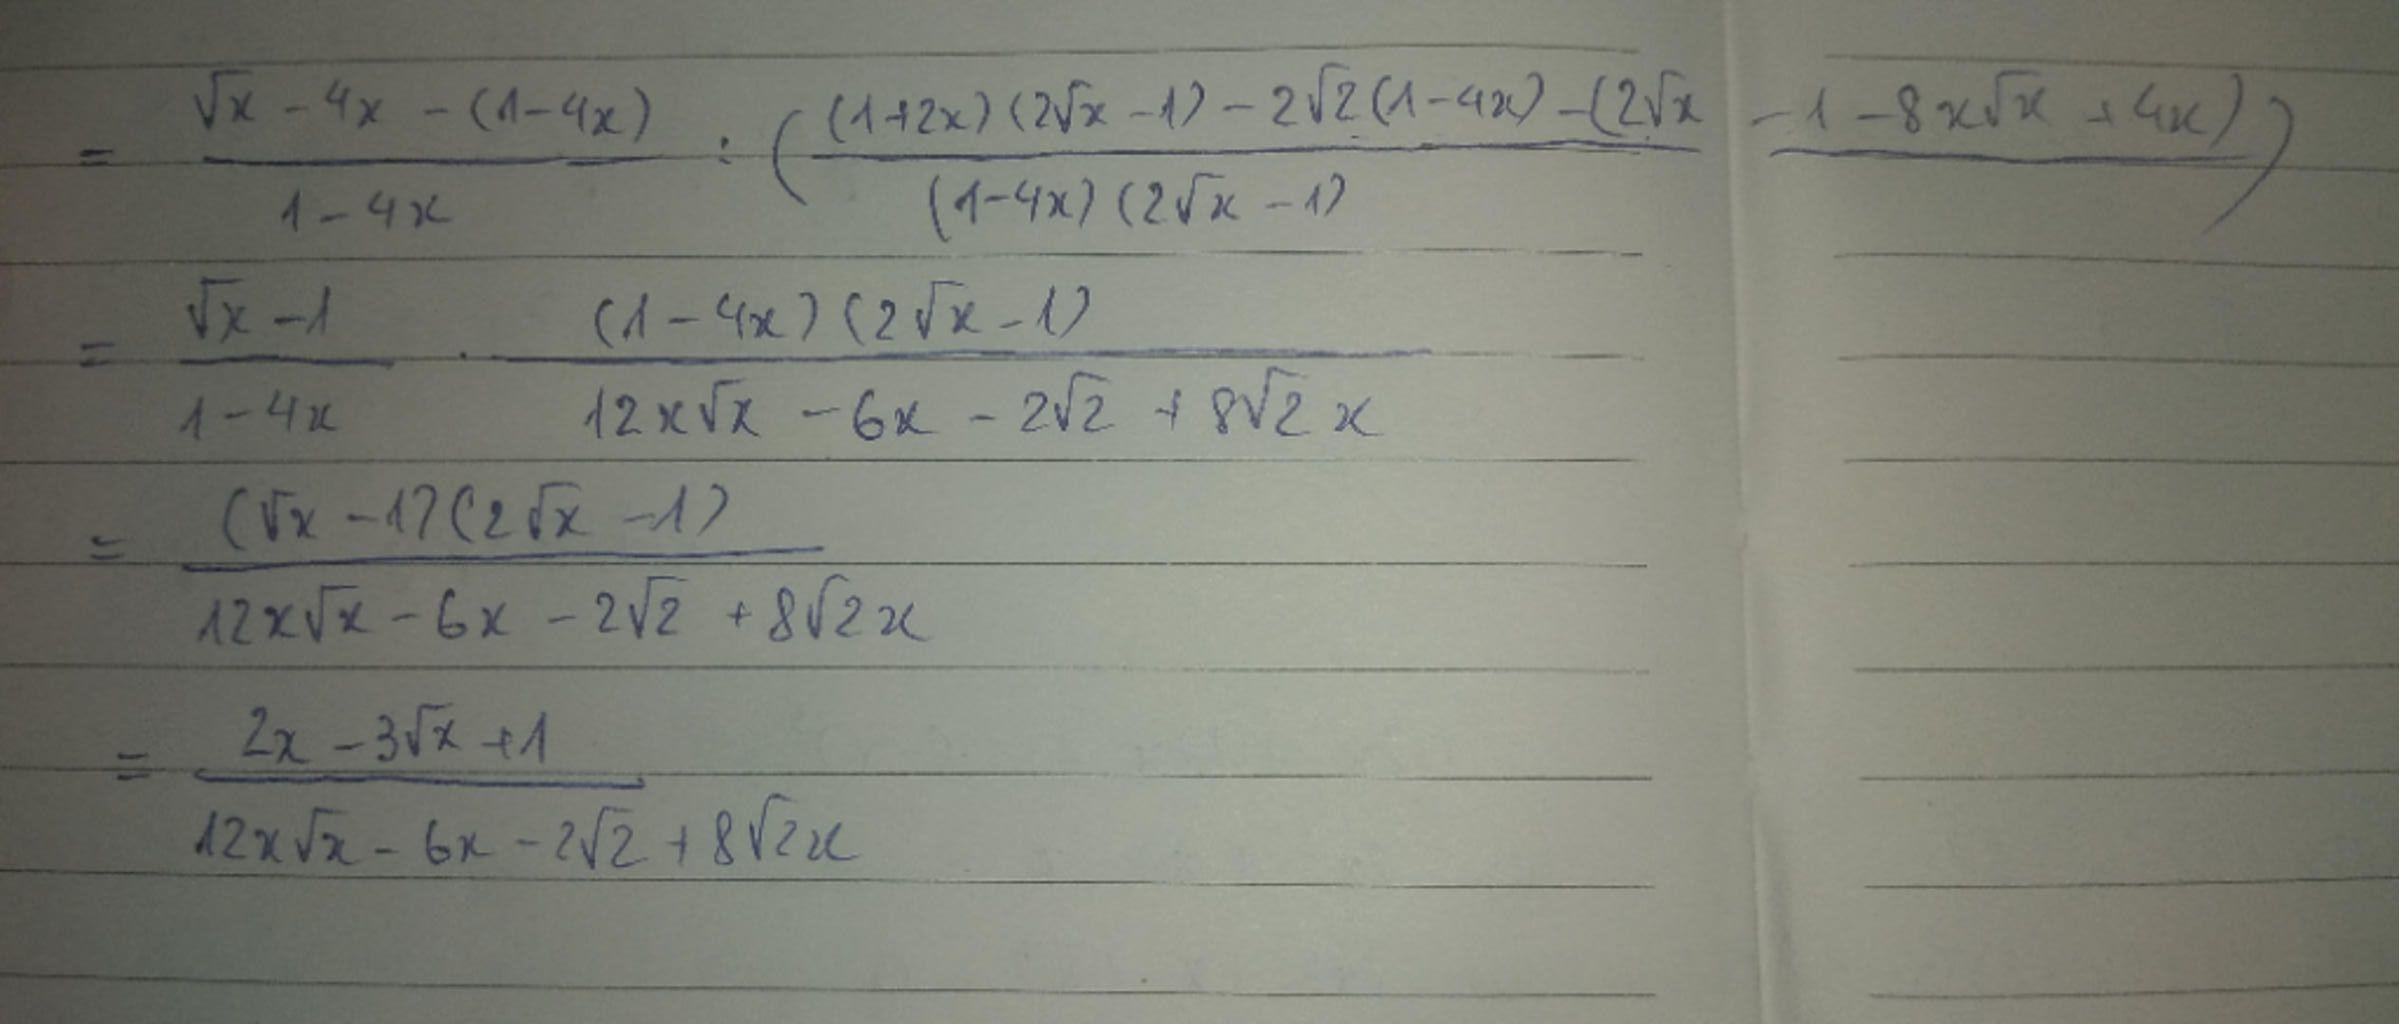 = (√x - 4x - (1-4x))/(1-4x) : ( ((1+2x)(2√x -1) - 2√2(1-4x) - (2√x -1 -8x√x +4x))/((1-4x)(2√x -1)) )
= (√x -1)/(1-4x) · ((1-4x)(2√x -1))/(12x√x - 6x - 2√2 + 8√2x)
= ((√x -1)(2√x -1))/(12x√x - 6x - 2√2 + 8√2x)
= (2x - 3√x + 1)/(12x√x - 6x - 2√2 + 8√2x)